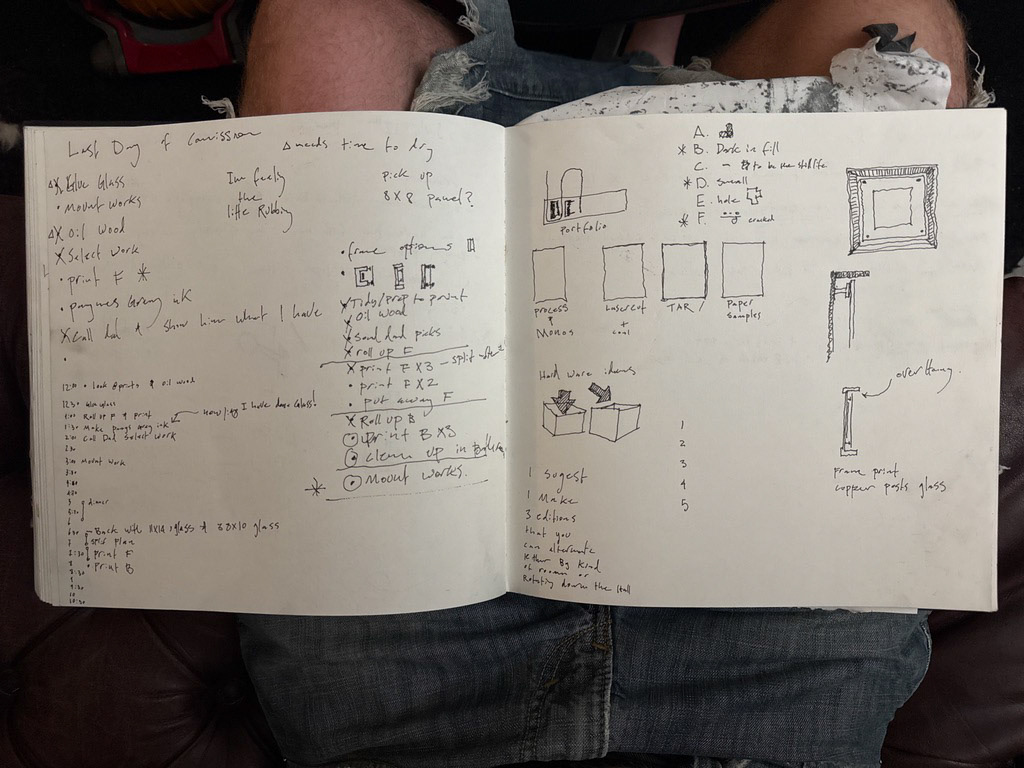 Last Day of
△ needs time to dry
△X Glue Glass
• Mount works
△X Oil Wood
X Select Work
• print F *
Grey ink
X Call show him what I have
•
Im feeling
the
little Rubbing
pick up
8x8 panel?
• frame options
•
X Tidy/Prep to print
X Oil wood
X send dad picks
X roll up F
X print F X3 – split after
• print F X2
• put away F
X Roll up B
print B X3
• clean up in
* • Mount Works.
12:00 • look @prints & oil wood
12:30 Glue Glass
1:00 Roll up F & print
1:30 Make grey ink I have done Glass!
2:00 Call Dad Select Work
2:30
3:00 Mount Work
3:30
4:00
4:30
5 dinner
5:30
6
6:30 – Back with 11x14 glass & 8x10 glass
7 split plan
7:30 • print F
8 • print B
8:30
9
9:30
10
10:30
A.
* B. Dark in fill
C. – to be the still life
* D. small
E. hole
* F. cracked
Portfolio
process
&
Monos
Lasercut
+
coal
TAR
Paper
Samples
Hard ware ideas
1
2
3
4
5
overhang.
frame print
copper posts glass
I sugest
I Make
3 editions
that you
can alternate
either By Kind
of room or
Rotating down the Hall